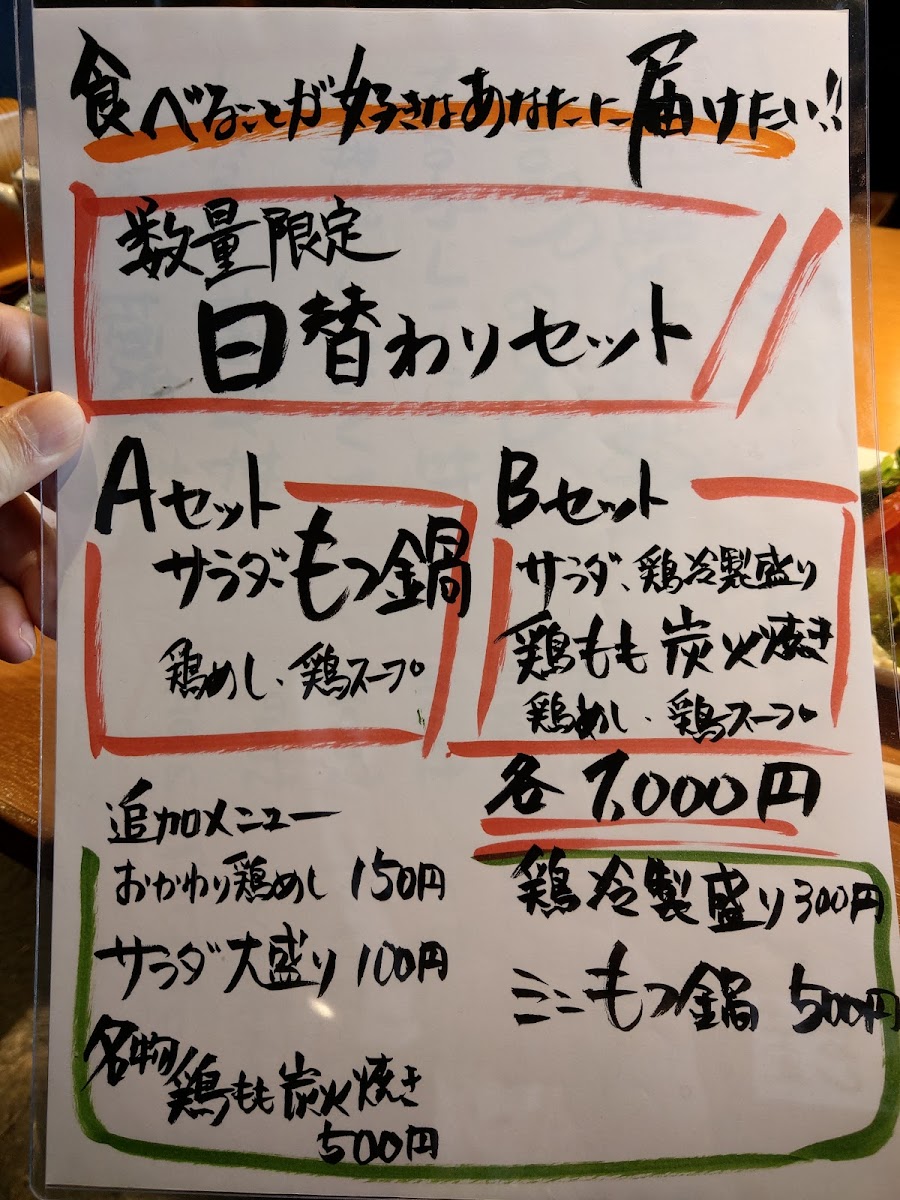 食べることが好きなあなたに届けたい!!
数量限定
日替わりセット
Aセット
サラダ、もつ鍋
鶏めし、鶏スープ
Bセット
サラダ、鶏冷製盛り
鶏もも炭火焼き
鶏めし、鶏スープ
各1,000円
追加メニュー
おかわり鶏めし 150円
サラダ大盛り 100円
名物 鶏もも炭火焼き
500円
鶏冷製盛り 300円
ミニもつ鍋 500円